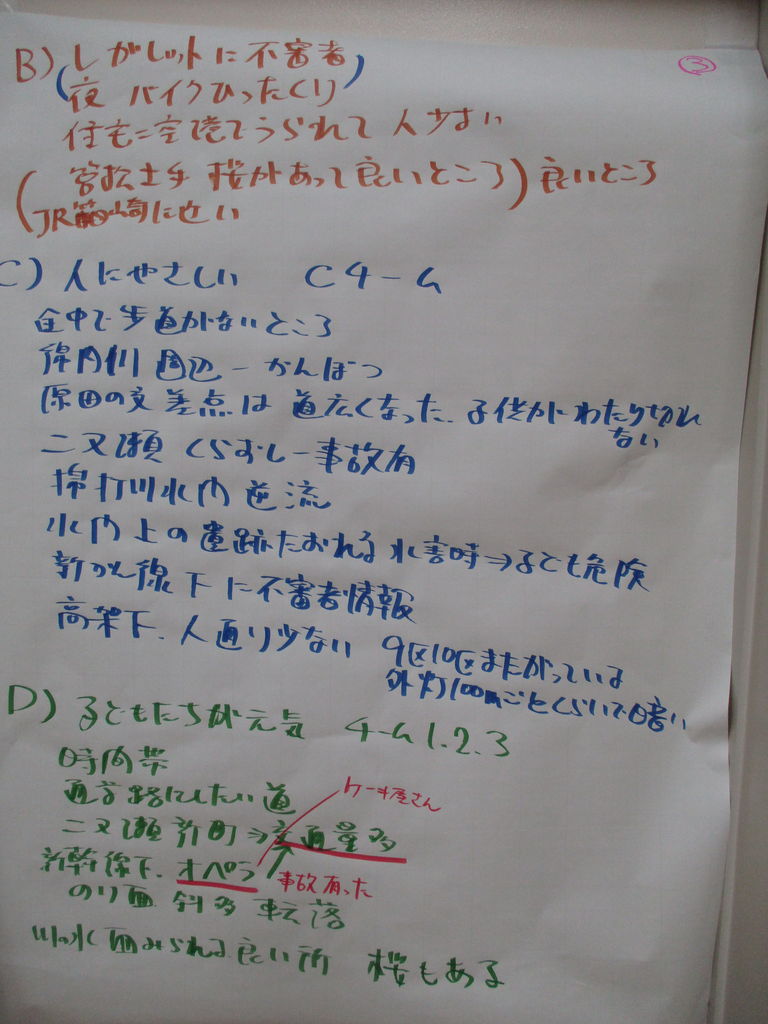 ③
B) レガレットに不審者
(夜 バイクひったくり)
住宅=空港でうられて 人少ない
(宮松土手 桜があって良いところ) 良いところ
JR箱崎に近い
C) 人にやさしい Cチーム
全中で歩道がないところ
綿内川 周辺-かんぼつ
原田の交差点は 道広くなった. 子供がわたり切れ
ない
二又瀬 くらむし-事故有
綿打川水門 逆流
水門上の遺跡たおれる 水害時⇒子ども危険
新かん線下に不審者情報
高架下. 人通り少ない 9区10区またがっている
外灯100mごとくらいで暗い
D) 子どもたちが元気 チーム1.2.3
時間帯
通学路にしたい道
ケーキ屋さん
二又瀬新町⇒交通量多
新幹線下. オペラ
事故有った
のり面 斜多 転落
川の水面みられる良い所 桜もある